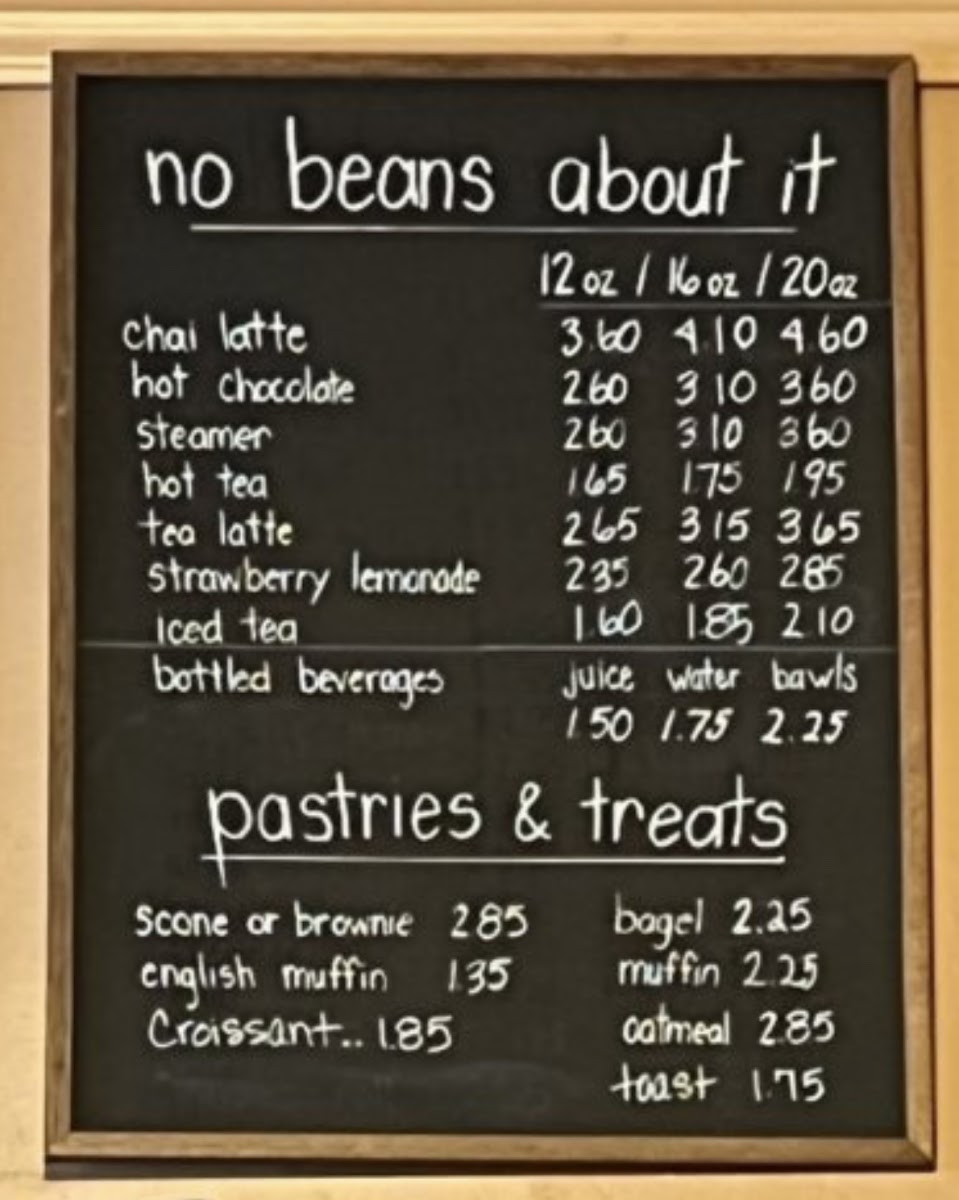 no beans about it
12 oz / 16 oz / 20 oz
chai latte 3.60 4.10 4.60
hot chocolate 2 60 3 10 3 60
steamer 2 60 3 10 3 60
hot tea 1 65 1 75 1 95
tea latte 2 65 3 15 3 65
strawberry lemonade 2 35 2 60 2 85
iced tea 1.60 1.85 2 10
bottled beverages juice water bawls
1 50 1.75 2.25
pastries & treats
scone or brownie 2 85 bagel 2.25
english muffin 1 35 muffin 2.25
Croissant.. 1.85 oatmeal 2.85
toast 1.75